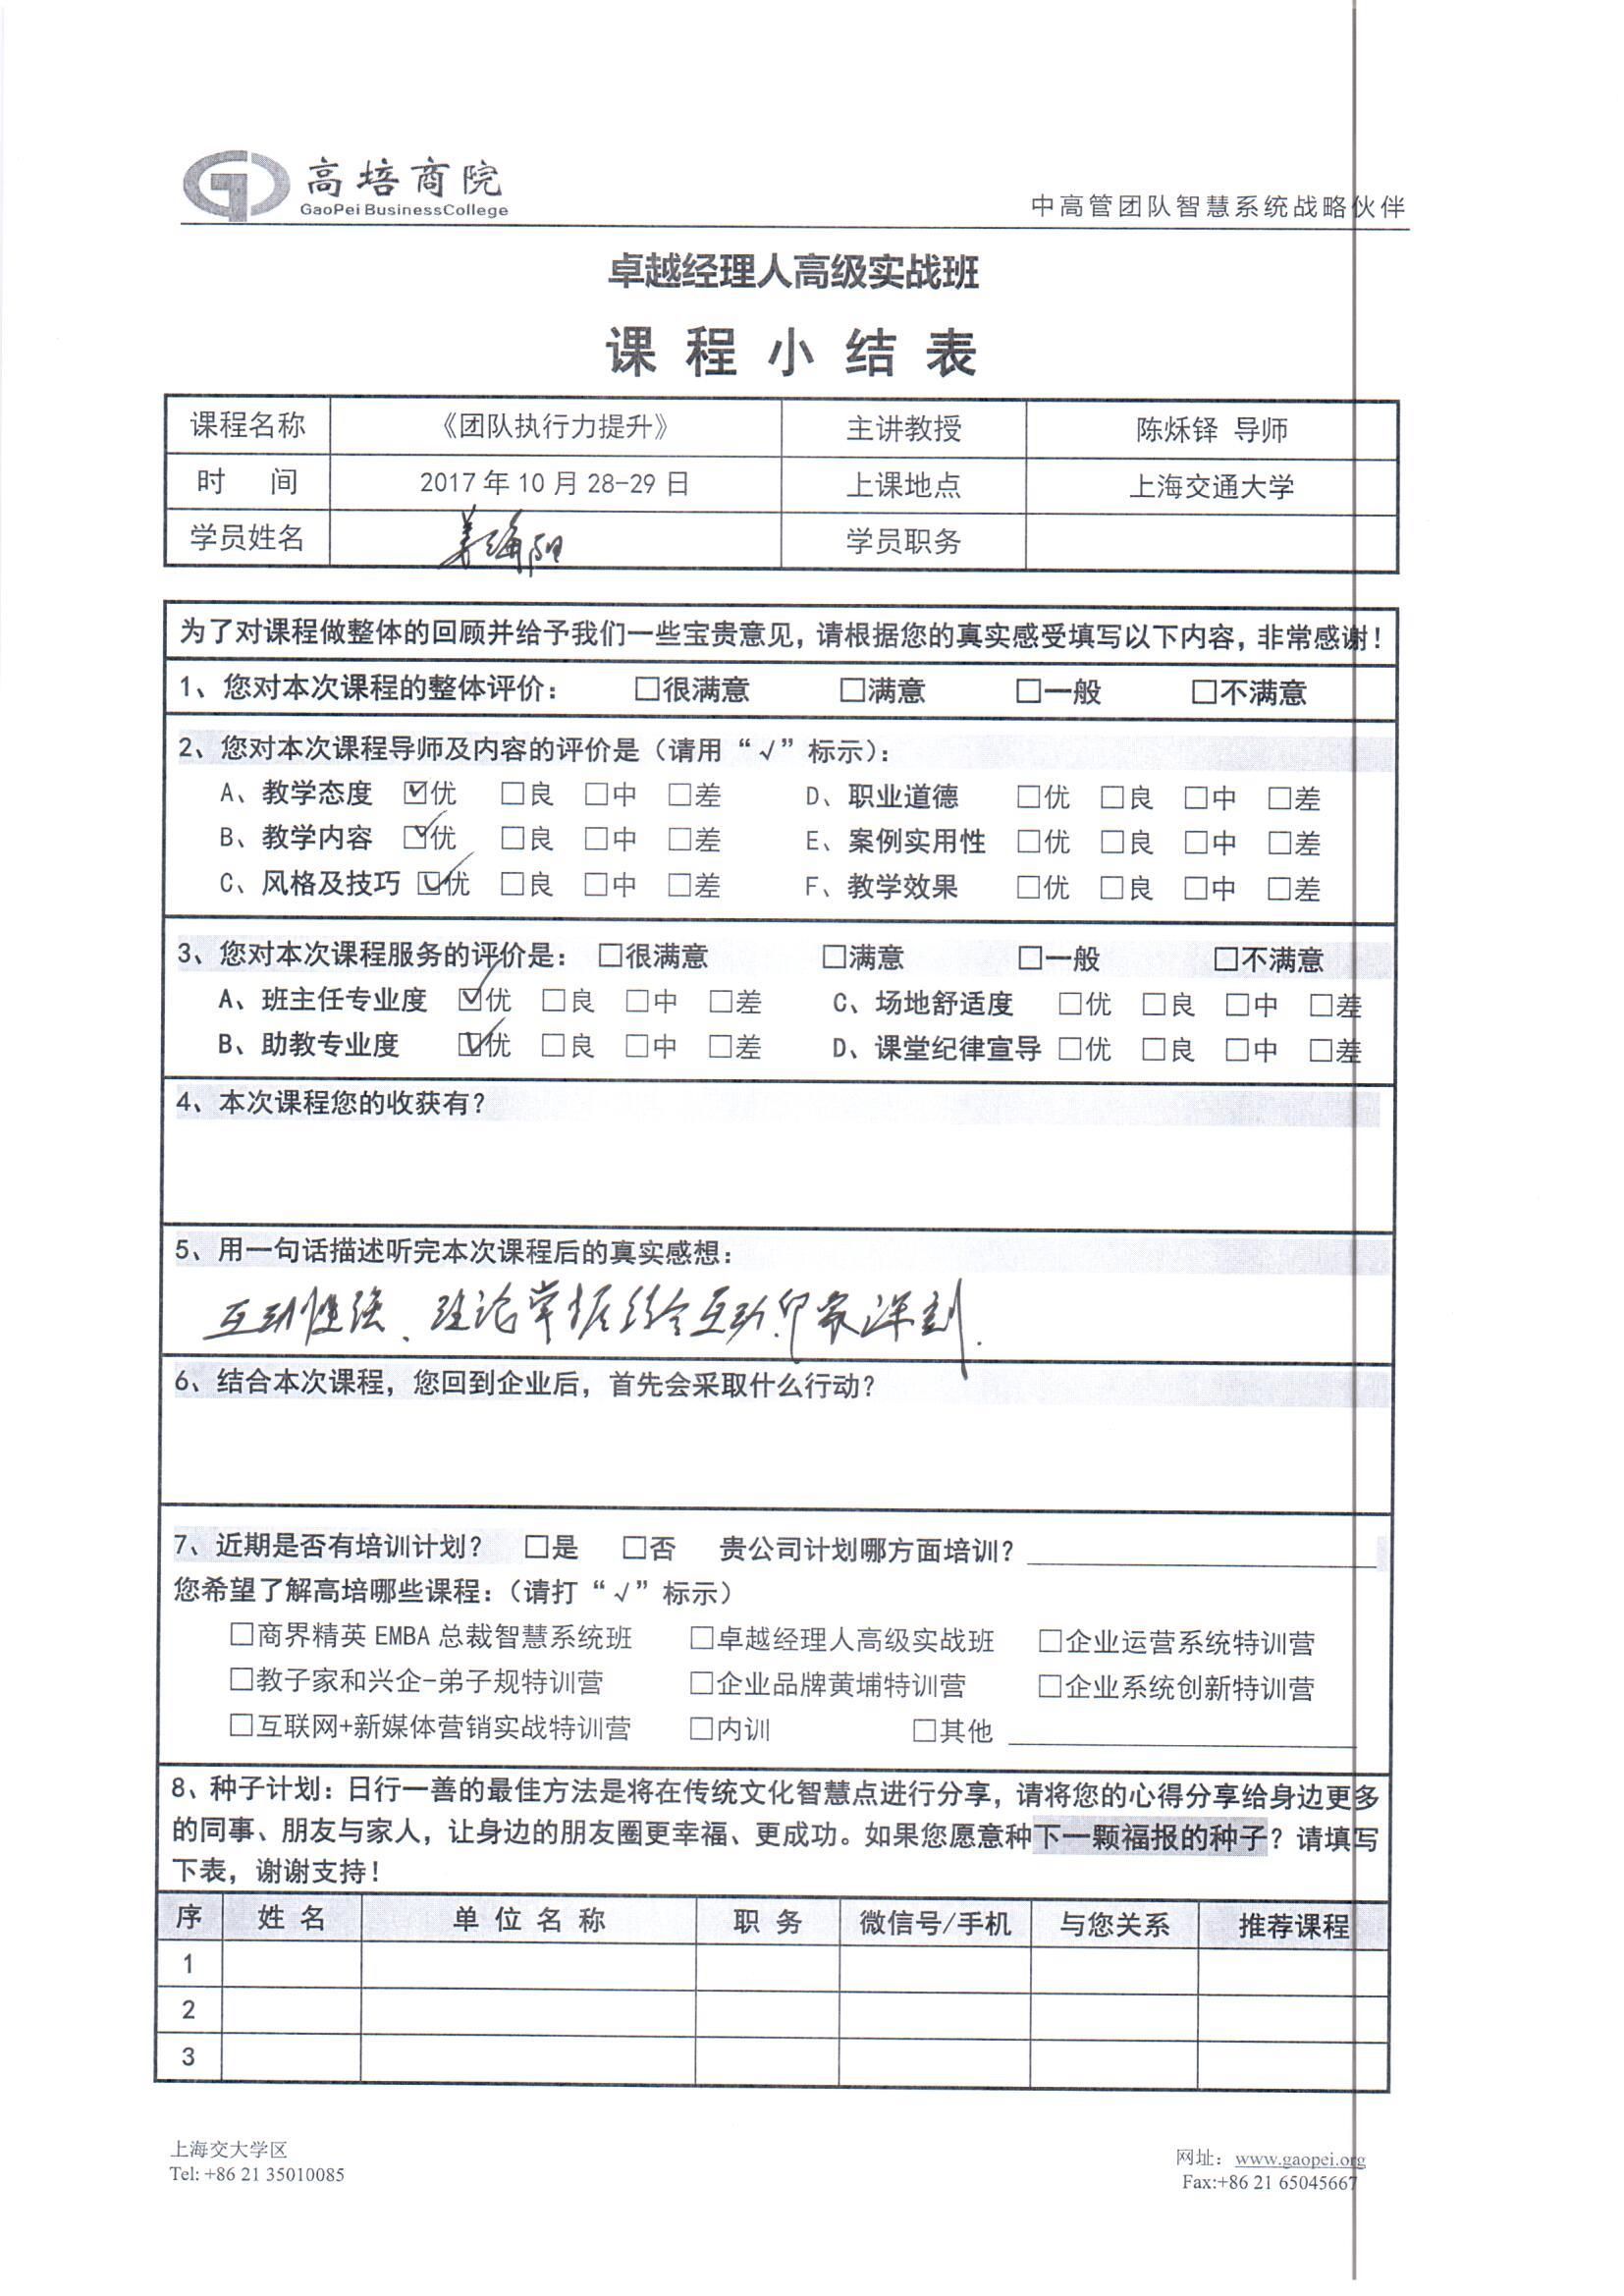 高培商院
GaoPei BusinessCollege
中高管团队智慧系统战略伙伴
卓越经理人高级实战班
课程小结表
课程名称 《团队执行力提升》 主讲教授 陈烁铎 导师
时 间 2017年10月28-29日 上课地点 上海交通大学
学员姓名 姜海阳 学员职务
为了对课程做整体的回顾并给予我们一些宝贵意见，请根据您的真实感受填写以下内容，非常感谢！
1、您对本次课程的整体评价： □很满意 □满意 □一般 □不满意
2、您对本次课程导师及内容的评价是（请用“√”标示）：
A、教学态度 ☑优 □良 □中 □差 D、职业道德 □优 □良 □中 □差
B、教学内容 ☑优 □良 □中 □差 E、案例实用性 □优 □良 □中 □差
C、风格及技巧 ☑优 □良 □中 □差 F、教学效果 □优 □良 □中 □差
3、您对本次课程服务的评价是： □很满意 □满意 □一般 □不满意
A、班主任专业度 ☑优 □良 □中 □差 C、场地舒适度 □优 □良 □中 □差
B、助教专业度 ☑优 □良 □中 □差 D、课堂纪律宣导 □优 □良 □中 □差
4、本次课程您的收获有？
5、用一句话描述听完本次课程后的真实感想：
互动性强、理论掌握结合互动.印象深刻.
6、结合本次课程，您回到企业后，首先会采取什么行动？
7、近期是否有培训计划？ □是 □否 贵公司计划哪方面培训？
您希望了解高培哪些课程：（请打“√”标示）
□商界精英EMBA总裁智慧系统班 □卓越经理人高级实战班 □企业运营系统特训营
□教子家和兴企-弟子规特训营 □企业品牌黄埔特训营 □企业系统创新特训营
□互联网+新媒体营销实战特训营 □内训 □其他
8、种子计划：日行一善的最佳方法是将在传统文化智慧点进行分享，请将您的心得分享给身边更多
的同事、朋友与家人，让身边的朋友圈更幸福、更成功。如果您愿意种下一颗福报的种子？请填写
下表，谢谢支持！
序 姓名 单位名称 职务 微信号/手机 与您关系 推荐课程
1
2
3
上海交大学区 网址：www.gaopei.org
Tel: +86 21 35010085 Fax:+86 21 65045667